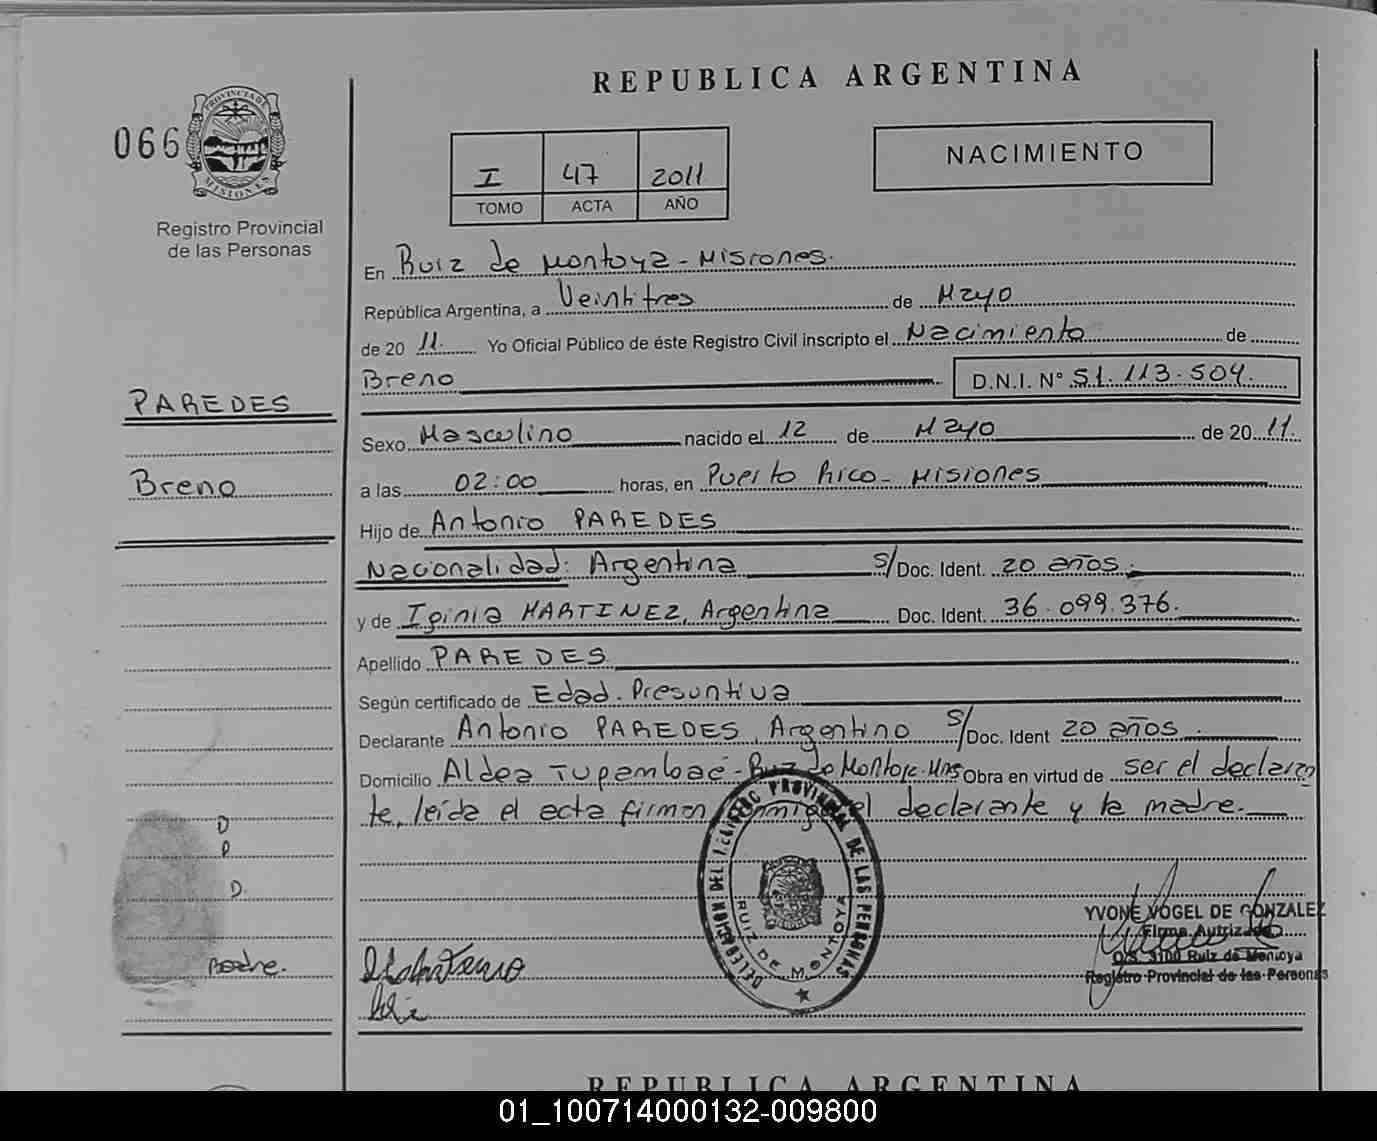 REPUBLICA ARGENTINA
066
PROVINCIA DE
MISIONES
Registro Provincial
de las Personas
I 47 2011
TOMO ACTA AÑO
NACIMIENTO
En Ruiz de Montoya - Misiones.
República Argentina, a Veintitres de Mayo
de 20 11. Yo Oficial Público de éste Registro Civil inscripto el Nacimiento de
Breno D.N.I. Nº 51.113.504.
PAREDES
Sexo Masculino nacido el 12 de Mayo de 20 11.
Breno
a las 02:00 horas, en Puerto Rico - Misiones
Hijo de Antonio PAREDES
Nacionalidad: Argentina S/Doc. Ident. 20 años.
y de Iginia MARTINEZ, Argentina Doc. Ident. 36.099.376.
Apellido PAREDES
Según certificado de Edad. Presuntiva
Declarante Antonio PAREDES, Argentino S/Doc. Ident 20 años.
Domicilio Aldea Tupambaé - Ruiz de Montoya. Mns Obra en virtud de ser el declaran
te, leída el acta firman conmigo el declarante y la madre.
D
P
D.
Madre.
DELEGACION DEL REGISTRO PROVINCIAL DE LAS PERSONAS
RUIZ DE MONTOYA
YVONE VOGEL DE GONZALEZ
Firma Autrizada
O/S. 3100 Ruiz de Montoya
Registro Provincial de las Personas
REPUBLICA ARGENTINA
01_100714000132-009800